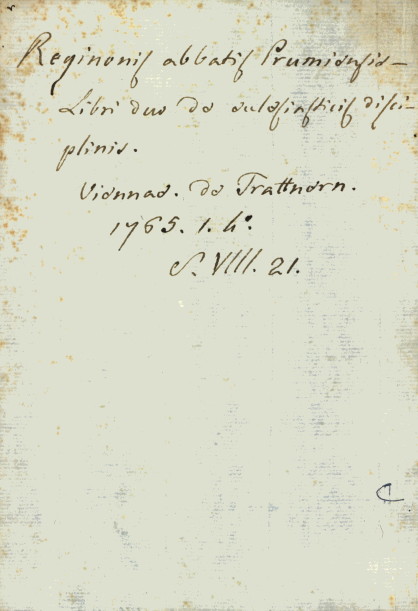 Reginonis abbatis Prumiensis
Libri duo de eclesiasticis disci-
plinis.
Viennae. de Trattnern.
1765. 1. 4°.
S. VIII. 21.
C